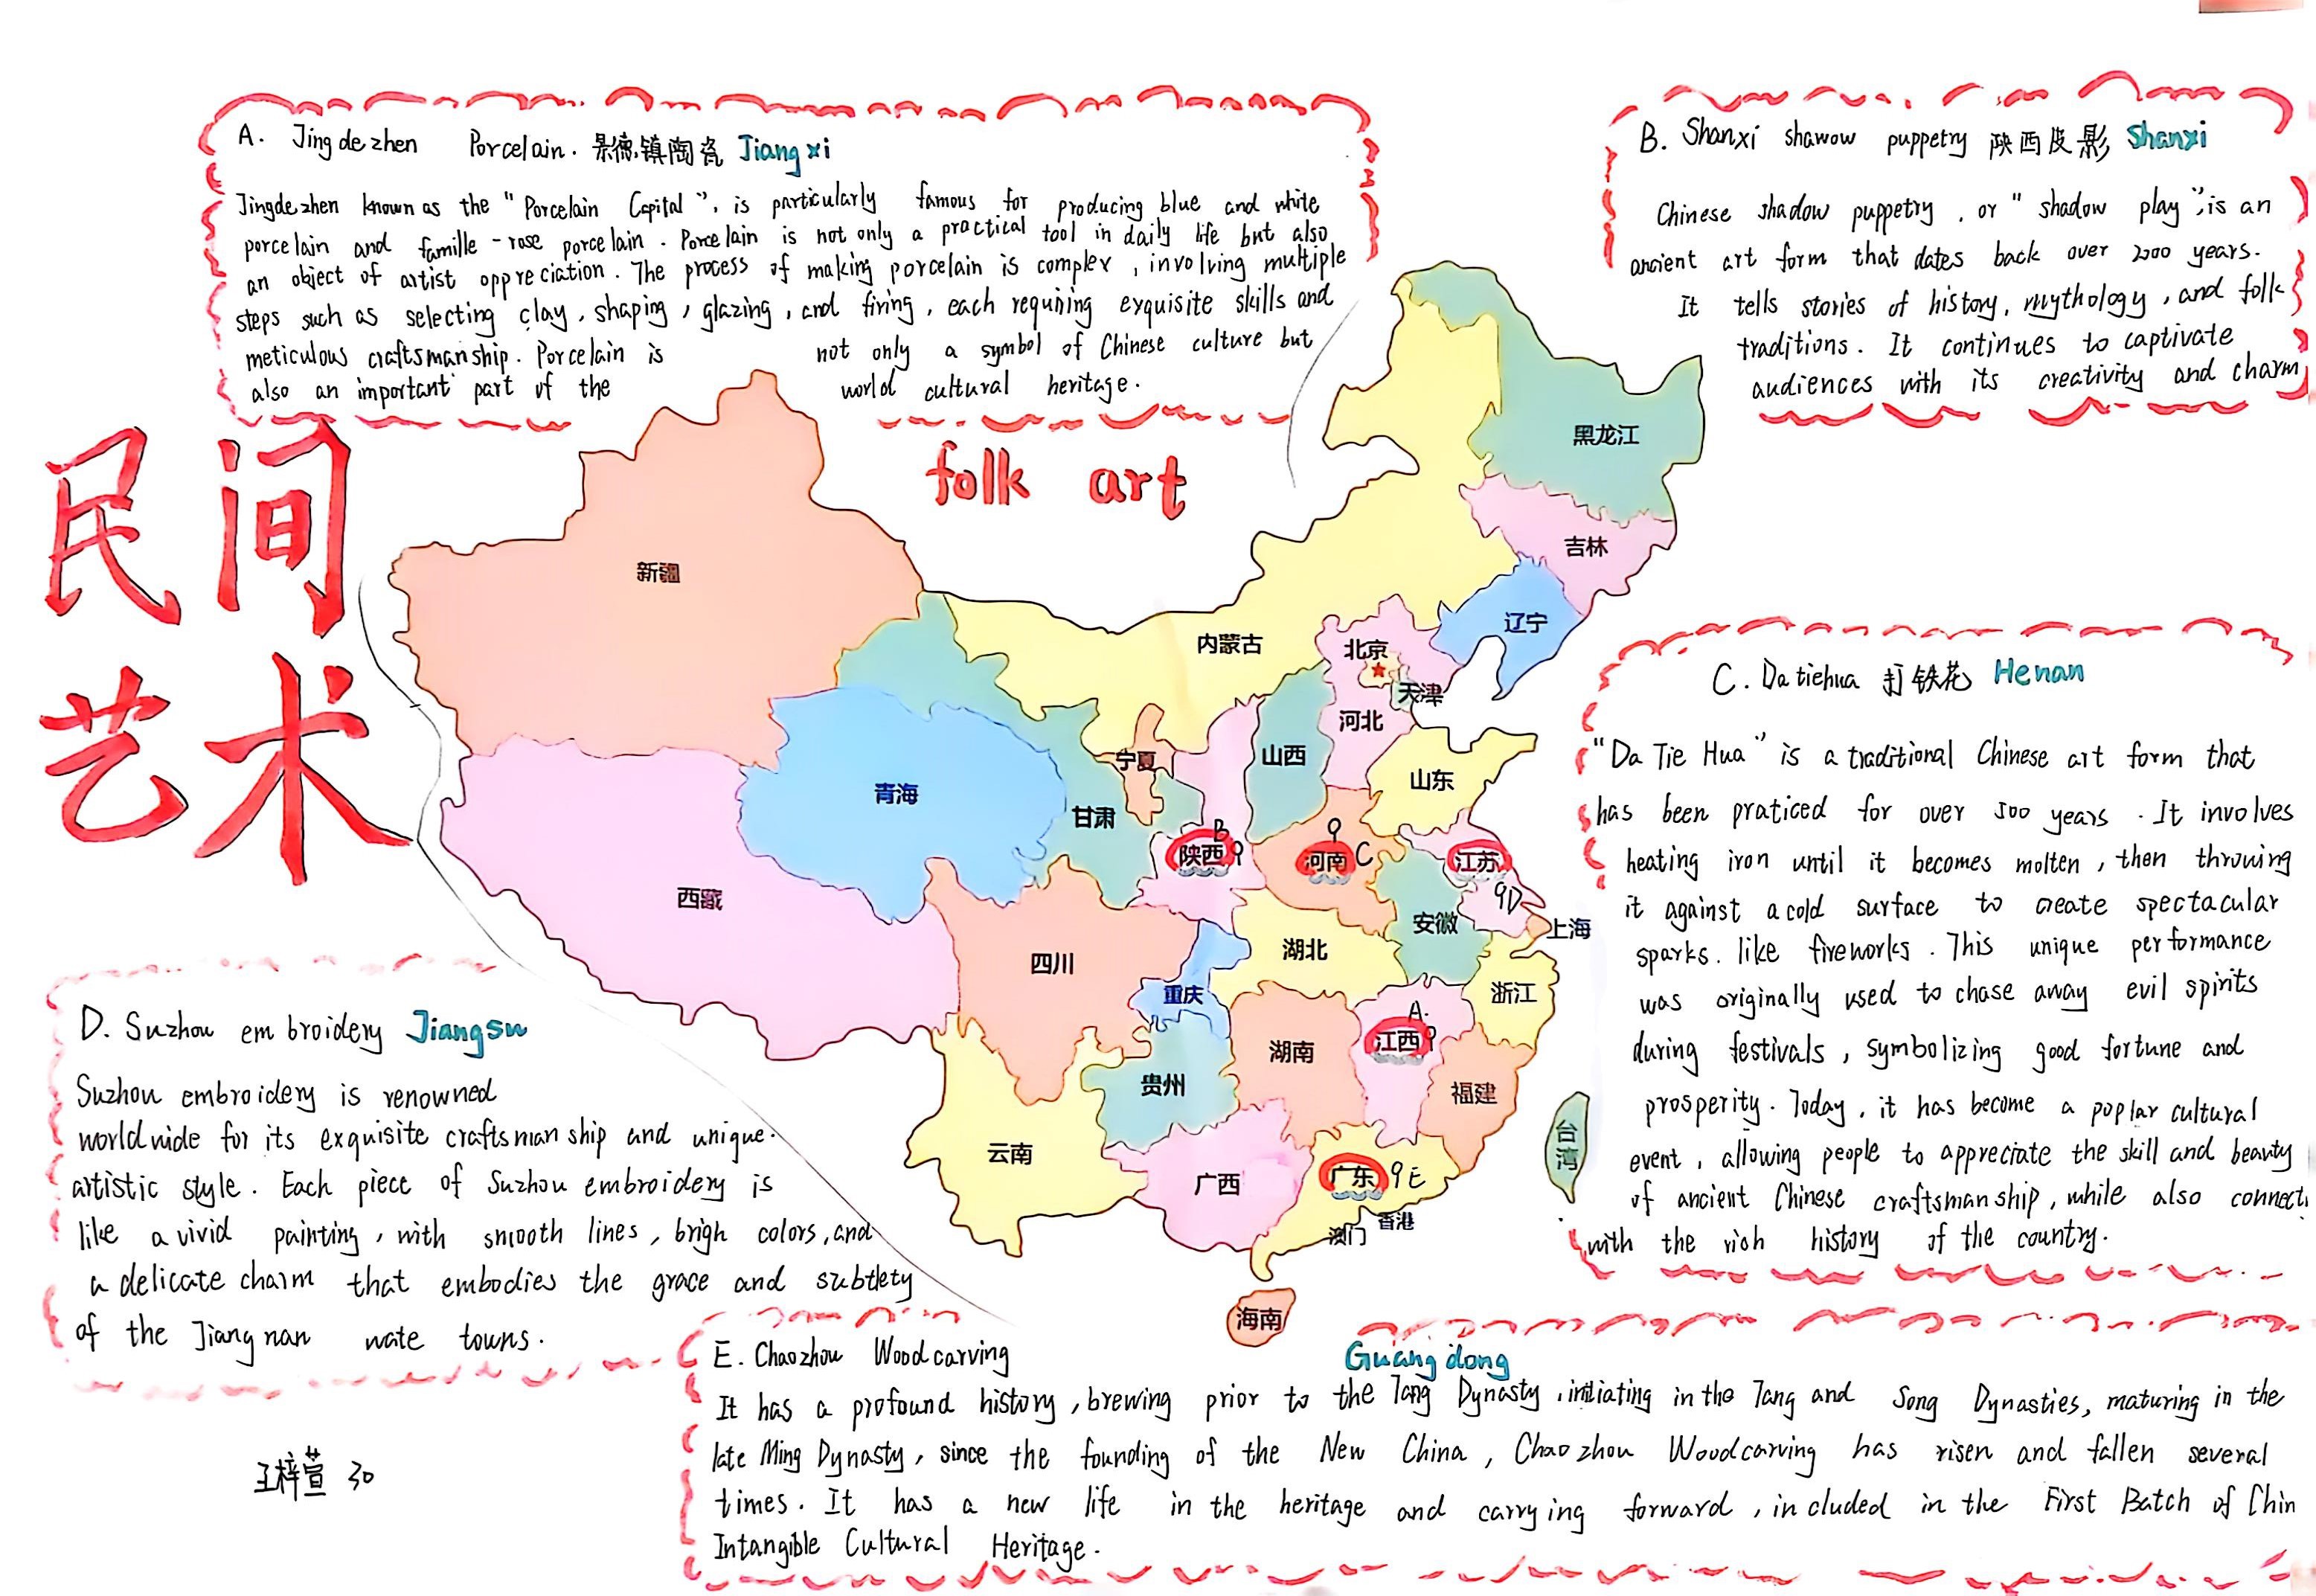 A. Jingdezhen Porcelain. 景德镇陶瓷 Jiangxi
Jingdezhen known as the "Porcelain Capital", is particularly famous for producing blue and white
porcelain and famille-rose porcelain. Porcelain is not only a practical tool in daily life but also
an object of artist oppreciation. The process of making porcelain is complex, involving multiple
steps such as selecting clay, shaping, glazing, and firing, each requiring exquisite skills and
meticulous craftsmanship. Porcelain is not only a symbol of Chinese culture but
also an important part of the world cultural heritage.
B. Shanxi shawow puppetry 陕西皮影 Shanxi
Chinese shadow puppetry, or "shadow play", is an
ancient art form that dates back over 2000 years.
It tells stories of history, mythology, and folk
traditions. It continues to captivate
audiences with its creativity and charm
民间
艺术
folk art
黑龙江
吉林
辽宁
新疆
内蒙古
北京
天津
河北
山西
宁夏
山东
青海
甘肃
B
陕西
河南 C
江苏
D
西藏
安徽
上海
四川
湖北
重庆
浙江
A.
江西
湖南
贵州
福建
云南
广西
广东 E
台湾
香港
澳门
海南
C. Da tiehua 打铁花 Henan
"Da Tie Hua" is a traditional Chinese art form that
has been praticed for over 500 years. It involves
heating iron until it becomes molten, then throwing
it against a cold surface to create spectacular
sparks. like fireworks. This unique performance
was originally used to chase away evil spirits
during festivals, symbolizing good fortune and
prosperity. Today, it has become a poplar cultural
event, allowing people to appreciate the skill and beauty
of ancient Chinese craftsmanship, while also connect
with the rich history of the country.
D. Suzhou embroidery Jiangsu
Suzhou embroidery is renowned
worldwide for its exquisite craftsmanship and unique.
artistic style. Each piece of Suzhou embroidery is
like a vivid painting, with smooth lines, brigh colors, and
a delicate charm that embodies the grace and subtlety
of the Jiangnan wate towns.
E. Chaozhou Woodcarving Guangdong
It has a profound history, brewing prior to the Tang Dynasty, initiating in the Tang and Song Dynasties, maturing in the
late Ming Dynasty, since the founding of the New China, Chaozhou Woodcarving has risen and fallen several
times. It has a new life in the heritage and carrying forward, included in the First Batch of Chin
Intangible Cultural Heritage.
王梓萱 30